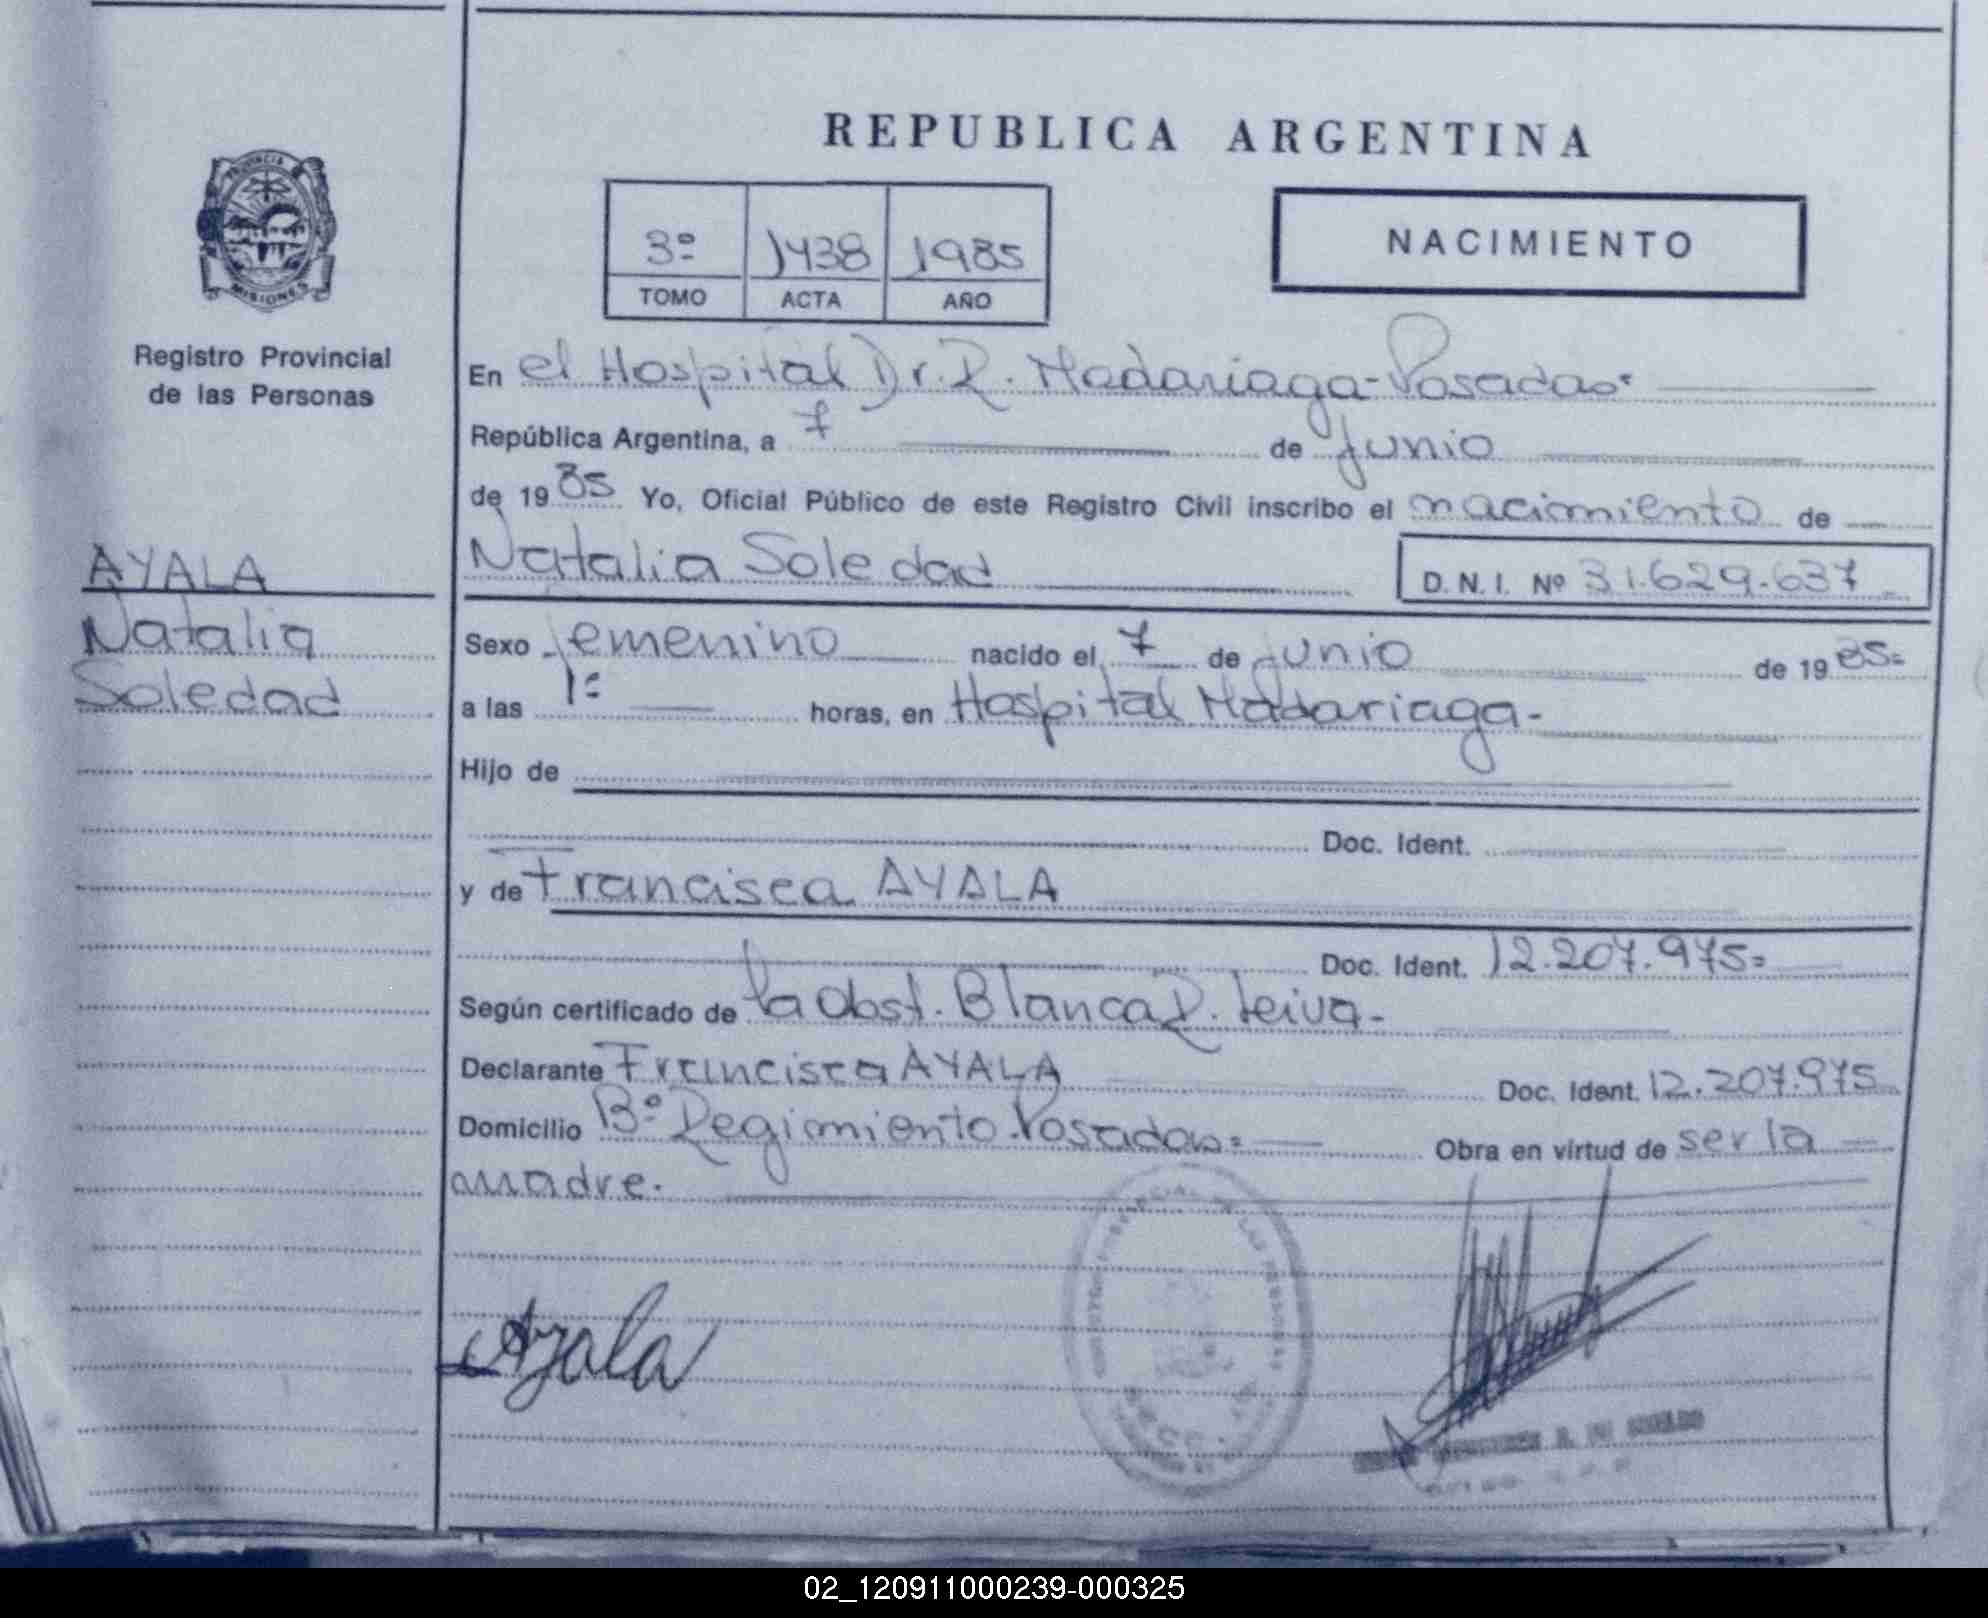 REPUBLICA ARGENTINA
PROVINCIA
MISIONES
Registro Provincial
de las Personas
3º 1438 1985
TOMO ACTA AÑO
NACIMIENTO
En el Hospital Dr. R. Madariaga - Posadas.
República Argentina, a 7 de Junio
de 1985 Yo, Oficial Público de este Registro Civil inscribo el nacimiento de
AYALA
Natalia
Soledad
Natalia Soledad D.N.I. Nº 31.629.637
Sexo femenino nacido el 7 de Junio de 1985=
a las 1= horas, en Hospital Madariaga-
Hijo de
Doc. Ident.
y de Francisca AYALA
Doc. Ident. 12.207.975=
Según certificado de la Obst. Blanca R. Leiva-
Declarante Francisca AYALA Doc. Ident. 12.207.975
Domicilio Bº Regimiento Posadas= Obra en virtud de ser la
madre.
Ayala
02_120911000239-000325